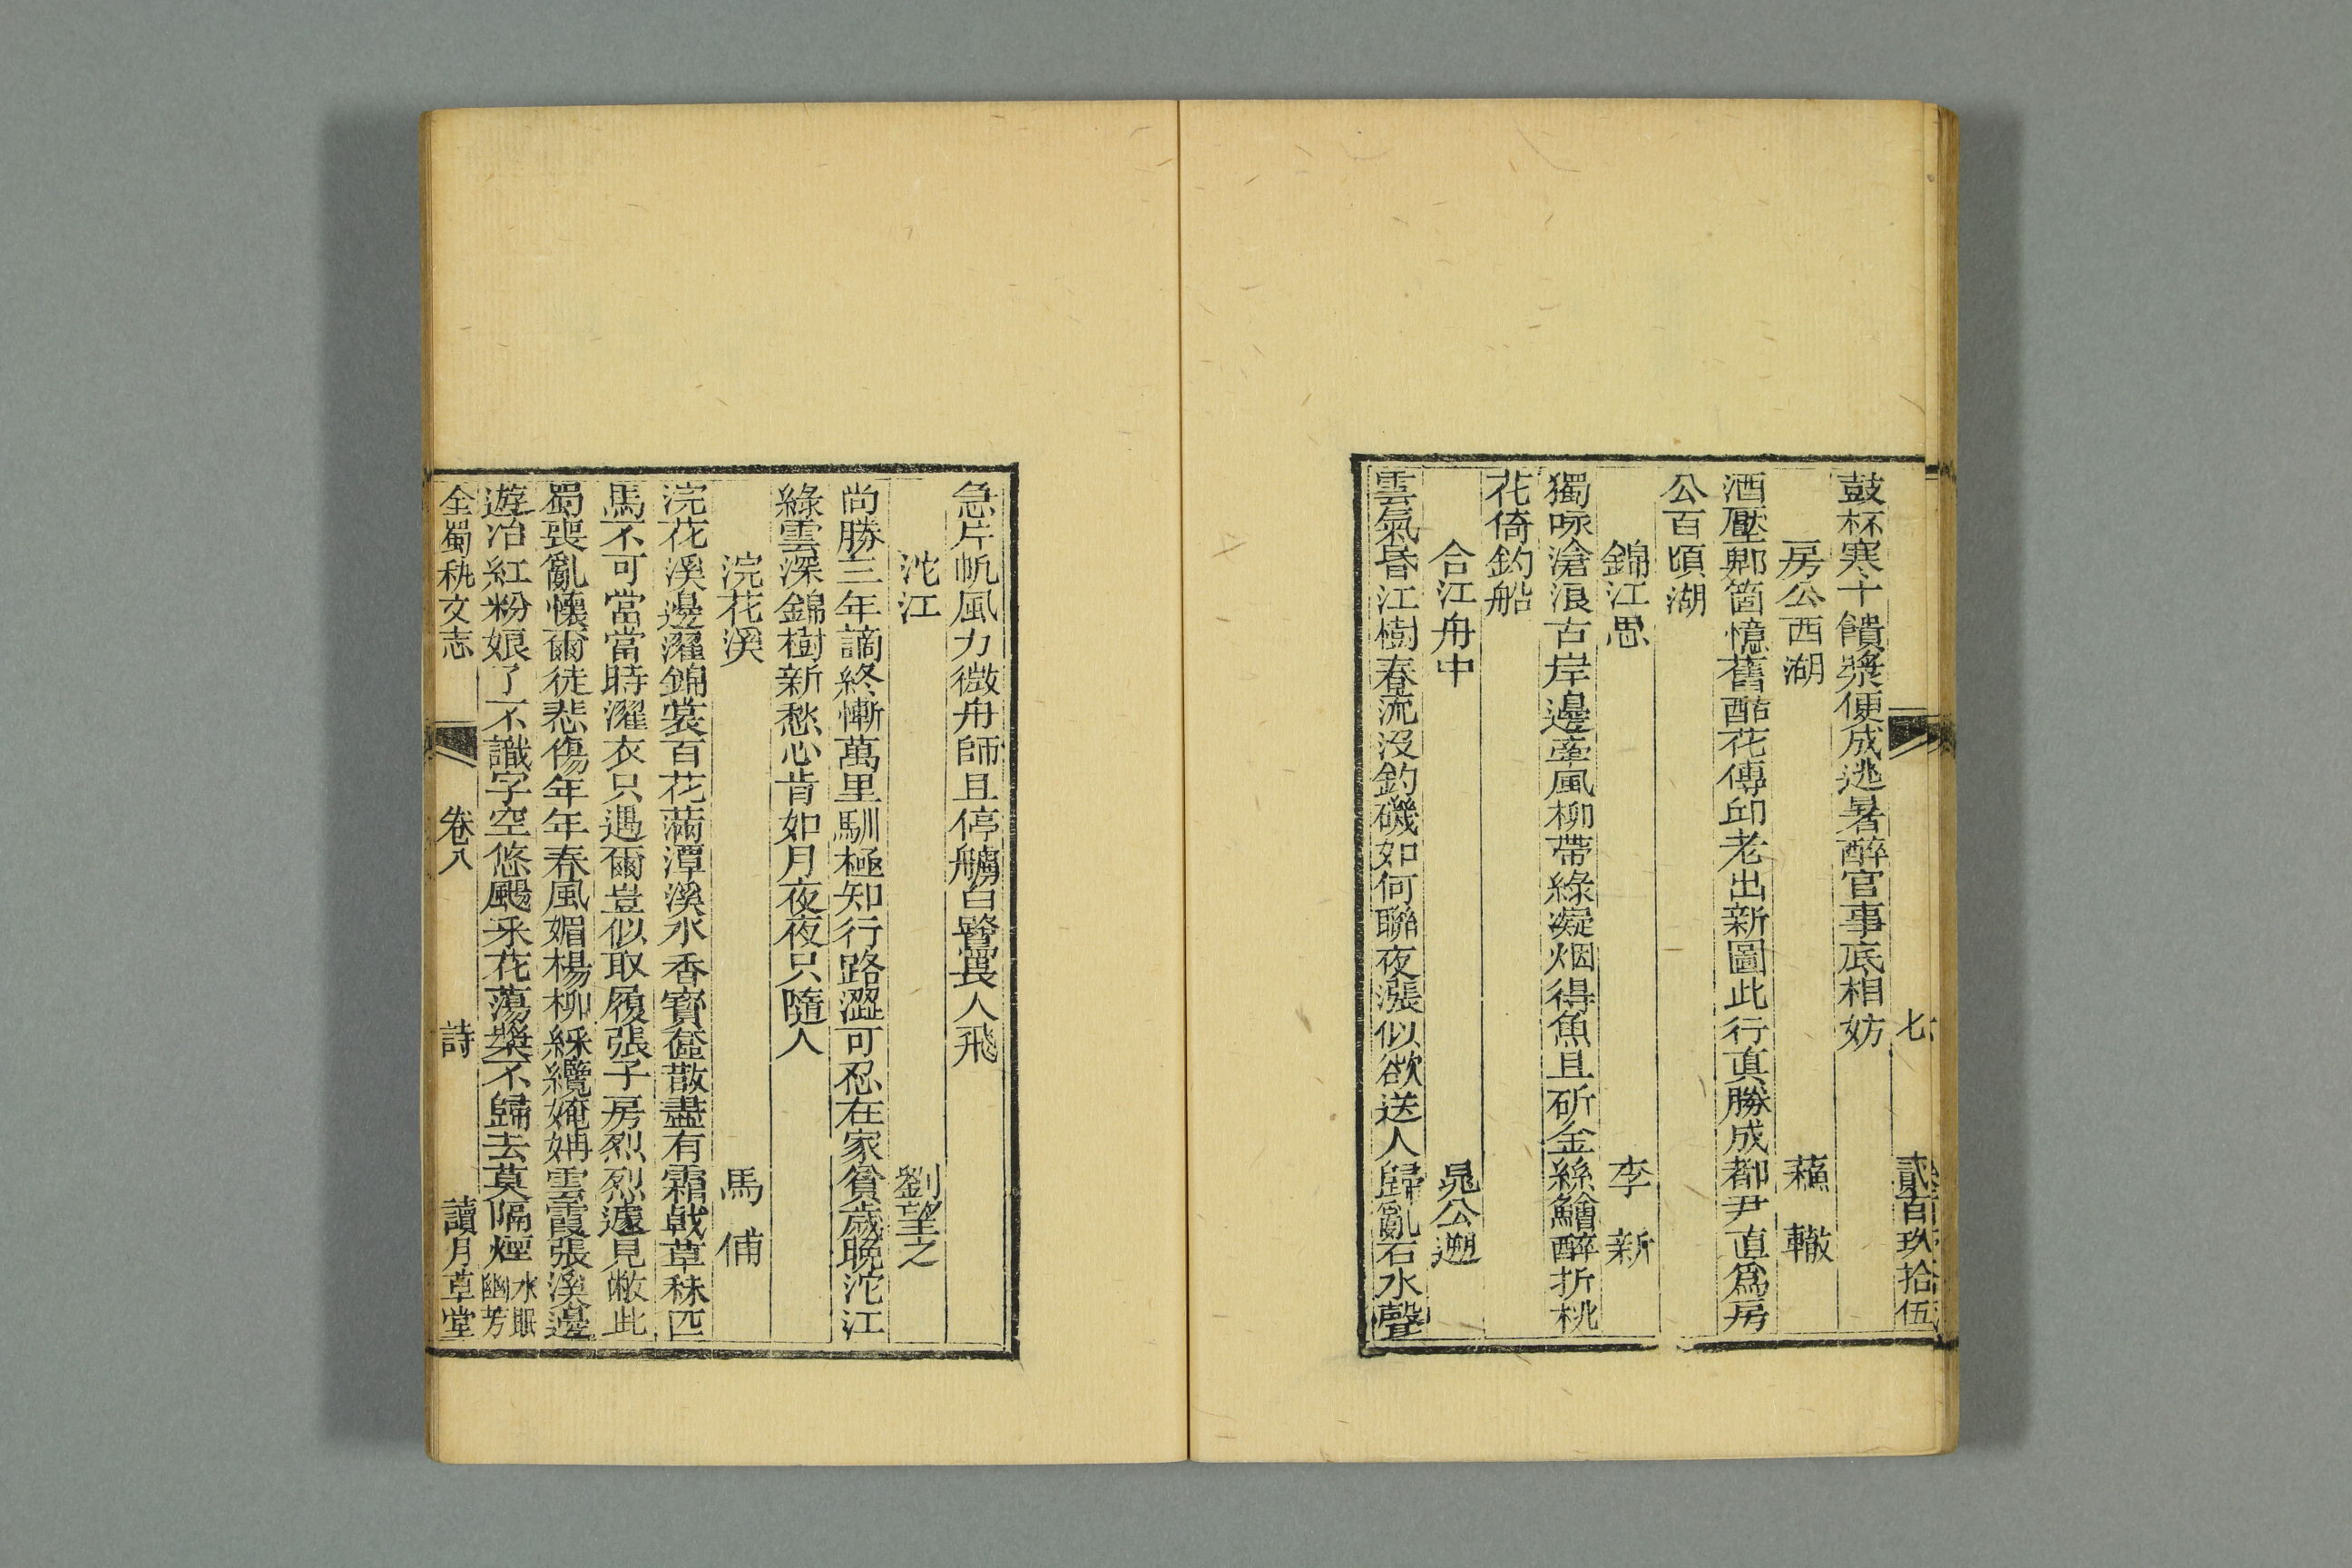 七
貳百玖拾伍
鼓杯寒十饋漿便成逃暑醉官事底相妨
房公西湖 蘇轍
酒壓郫筒憶舊酤花傳邱老出新圖此行真勝成都尹直爲房
公百頃湖
錦江思 李新
獨咏滄浪古岸邊牽風柳帶綠凝烟得魚且斫金絲鱠醉折桃
花倚釣船
合江舟中 晁公遡
雲氣昏江樹春流沒釣磯如何聯夜漲似欲送人歸亂石水聲
急片帆風力微舟師且停艣白鷺畏人飛
沱江 劉望之
尚勝三年謫終慚萬里馴極知行路澀可忍在家貧歲晚沱江
綠雲深錦樹新愁心肯如月夜夜只隨人
浣花溪 馬俌
浣花溪邊濯錦裳百花滿潭溪水香寶奩散盡有霜戟草秣匹
馬不可當當時濯衣只遇爾豈似取履張子房烈烈遽見敝此
蜀喪亂懷爾徒悲傷年年春風媚楊柳綵纜婠娟雲霞張溪邊
遊冶紅粉娘了不識字空悠颺采花蕩槳不歸去莫隔煙水眠幽芳
全蜀秇文志 卷八 詩 讀月草堂